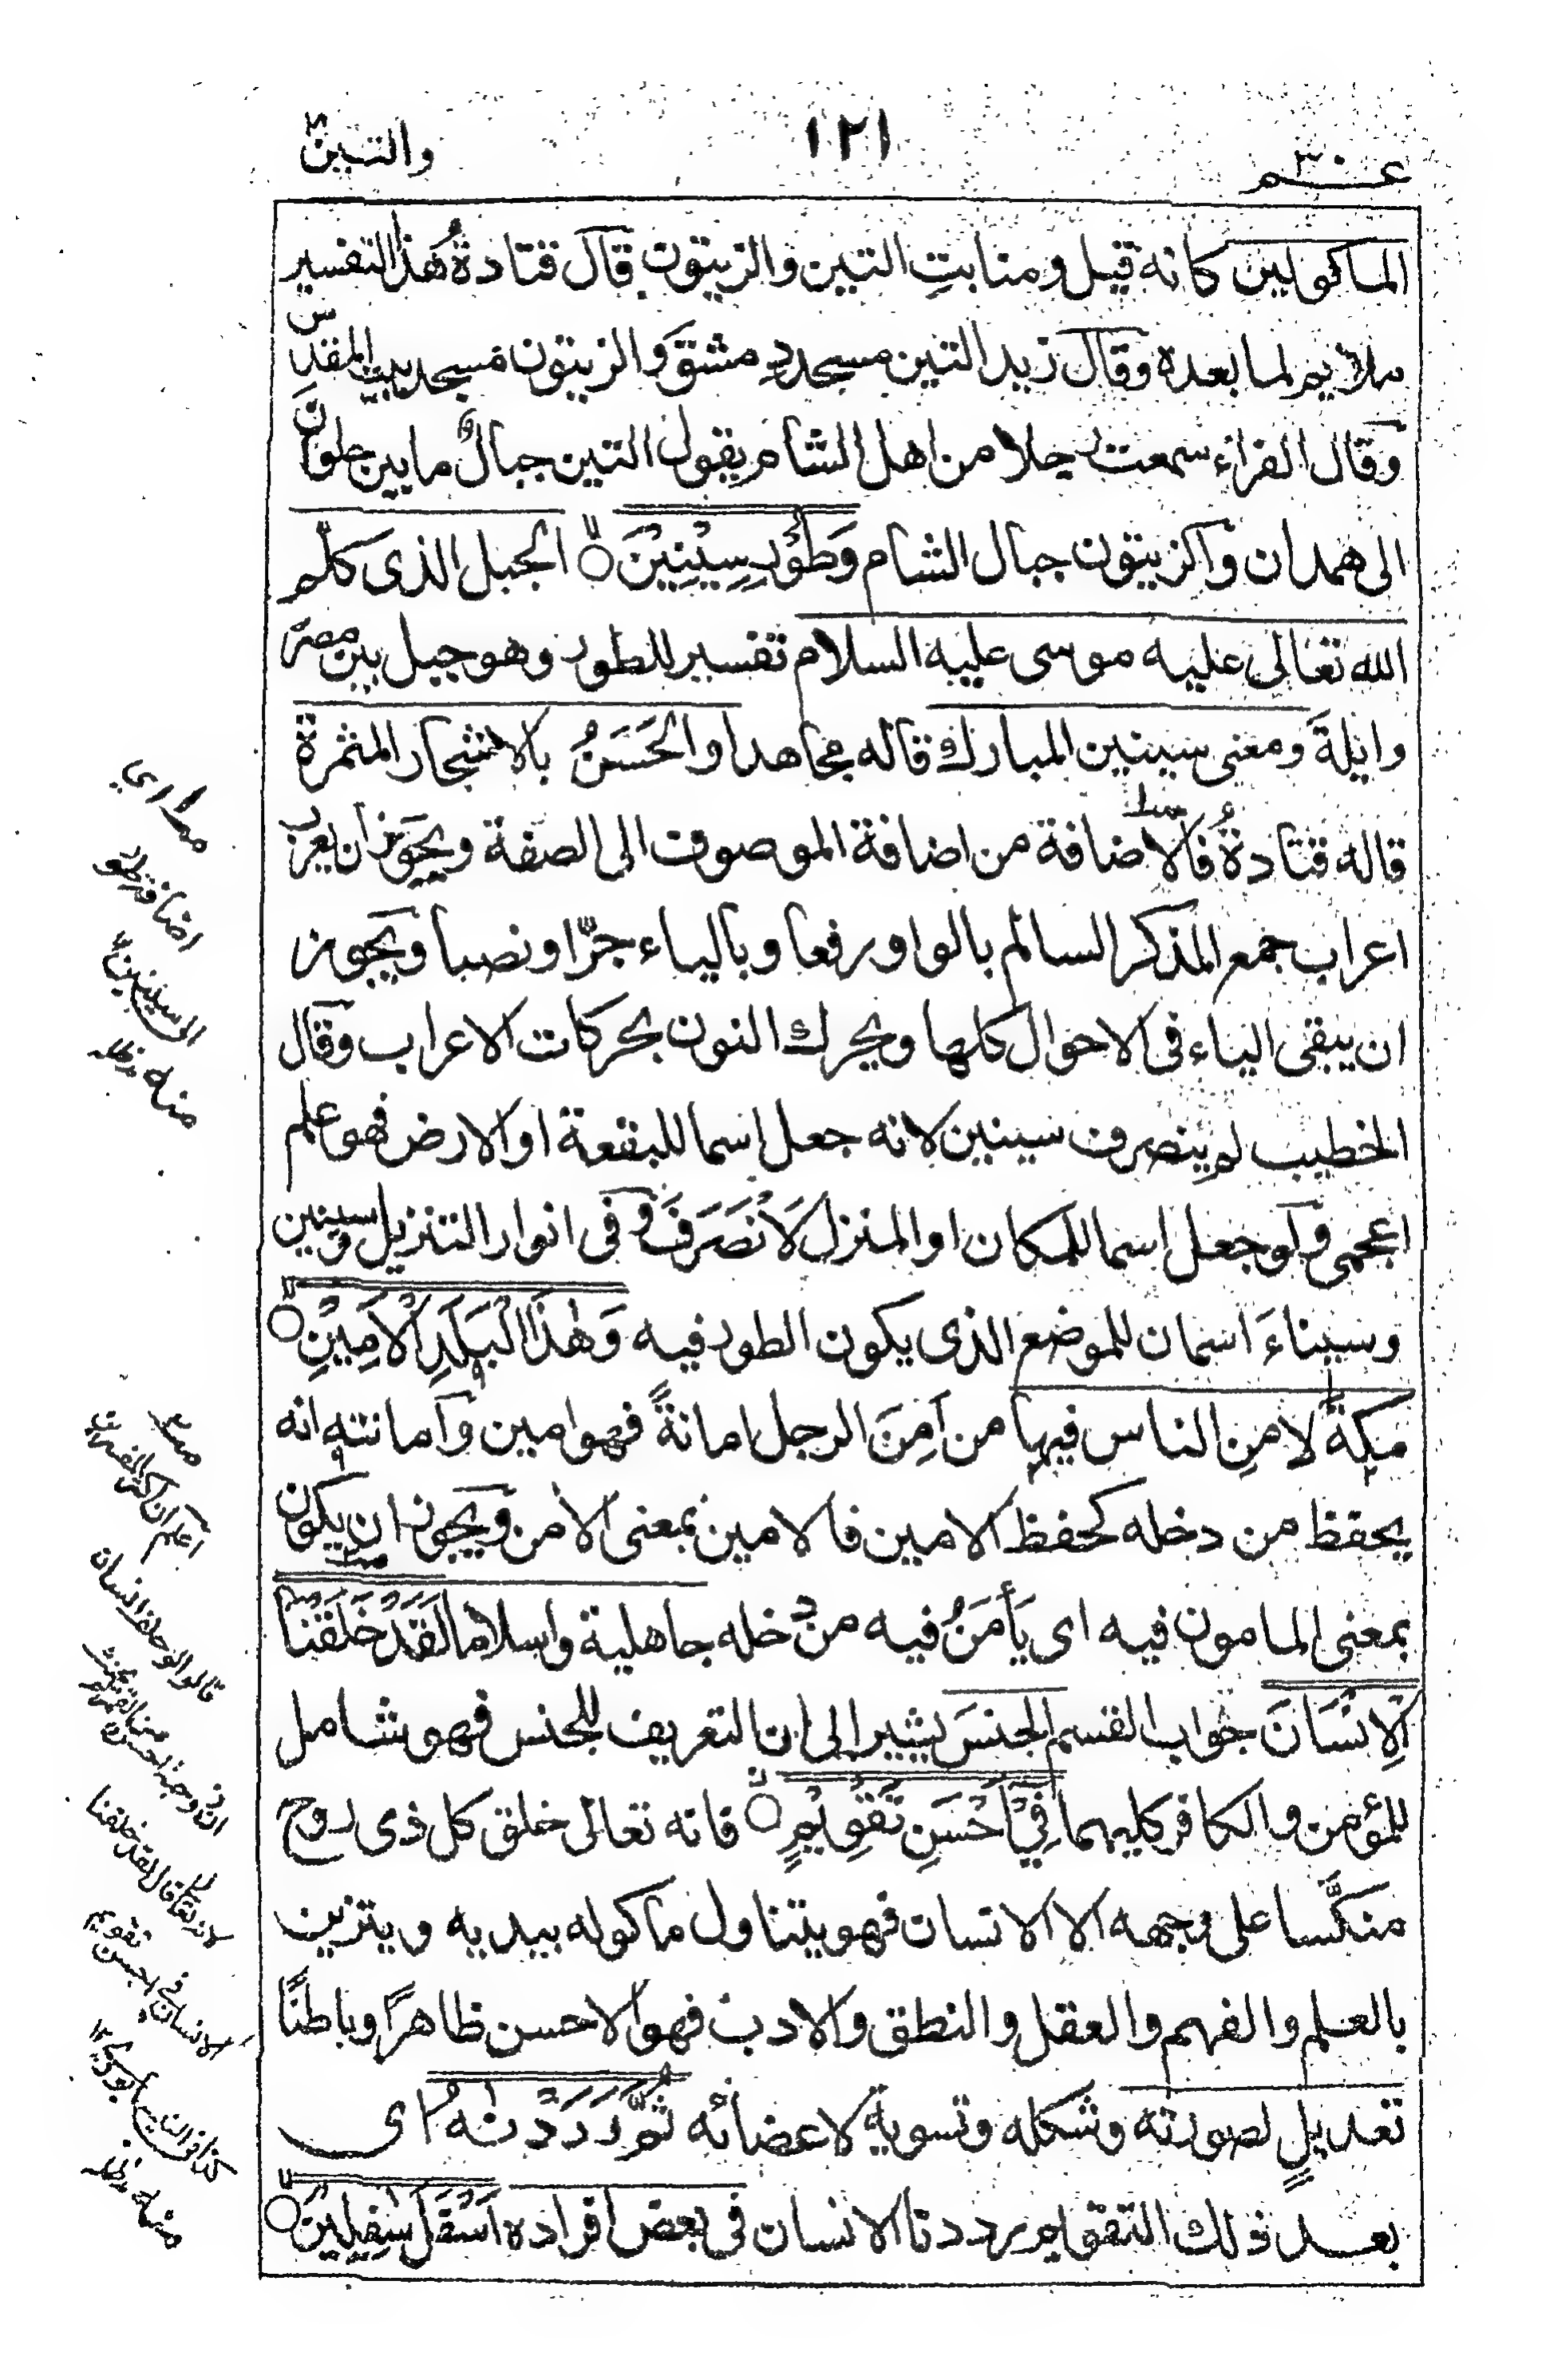 عم ٣٠
١٢١
والتين
الماكولين كانه قيل ومنابتِ التين والزيتون قال قتادةُ هذا التفسير
ملايم لما بعده وقال زيد التين مسجد دمشق والزيتون مسجد بيت المقدس
وقال الفراء سمعت رجلا من اهل الشام يقول التين جبال ما بين حلوان
الى همدان والزيتون جبال الشام وَطُوْرِ سِيْنِيْنَ الجبل الذى كلم
الله تعالى عليه موسى عليه السلام تفسير للطور وهو جبل بين مصر
وايلةَ ومعنى سينين المبارك قاله مجاهد او الحَسَنُ بالاشجار المثمرة
قاله قتادةُ فالاضافة من اضافة الموصوف الى الصفة ويجوز ان يعرب
اعراب جمع المذكر السالم بالواو رفعا وبالياء جرّا ونصبا ويجوز
ان يبقى الياء فى الاحوال كلها ويحرك النون بحركات الاعراب وقال
الخطيب لم ينصرف سينين لانه جعل اسما للبقعة او الارض فهو علم
اعجمى ولو جعل اسما للمكان او المنزل لَانْصَرَفَ وفى انوار التنزيل سينين
وسيناءَ اسمان للموضع الذى يكون الطور فيه وَهٰذَا الْبَلَدِ الْاَمِيْنِ
مكةَ لامنِ الناس فيها من اَمِنَ الرجل امانةً فهو امين وامانته انه
يحفظ من دخله كحفظ الامين فالامين بمعنى الاٰمن ويجوز ان يكون
بمعنى المامون فيه اى يَأمَنُ فيه من دخله جاهلية واسلاما لَقَدْ خَلَقْنَا
الْاِنْسَانَ جواب القسم الجنسَ يشير الى ان التعريف للجنس فهو شامل
للمؤمن والكافر كليهما فِيْٓ اَحْسَنِ تَقْوِيْمٍ فانه تعالى خلق كل ذى روح
منكَّسا على وجهه الا الانسان فهو يتناول ماكوله بيديه ويتزين
بالعلم والفهم والعقل والنطق والادب فهو الاحسن ظاهرًا وباطنًا
تعديلٍ لصورته وشكله وتسوية لاعضائه ثُمَّ رَدَدْنٰهُ اى
بعد ذلك التقويم رددنا الانسان فى بعض افراده اَسْفَلَ سٰفِلِيْنَ
اضافة طور
الى سينين
منه
اعلم ان اكثر المفسرين
الانسان فى احسن تقويم
منه